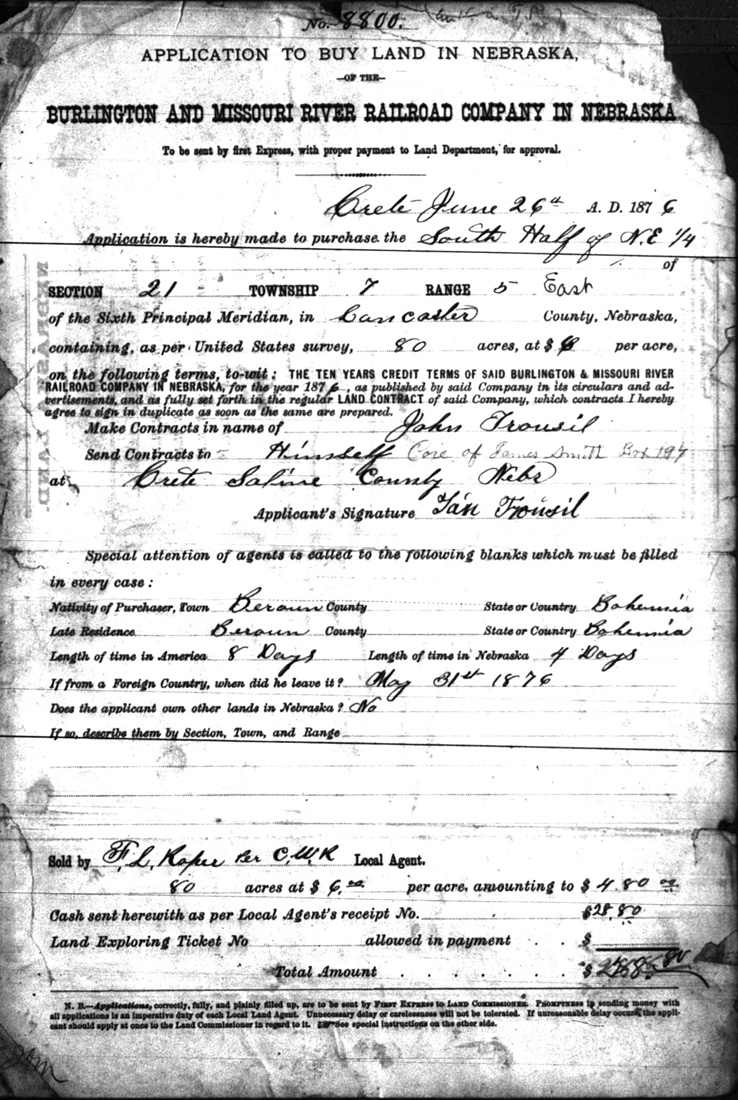 No. 8800.
APPLICATION TO BUY LAND IN NEBRASKA,
—OF THE—
BURLINGTON AND MISSOURI RIVER RAILROAD COMPANY IN NEBRASKA
To be sent by first Express, with proper payment to Land Department, for approval.
Crete June 26th A. D. 1876
Application is hereby made to purchase the South Half of N.E 1/4
of
SECTION 21 TOWNSHIP 7 RANGE 5 East
of the Sixth Principal Meridian, in Lancaster County, Nebraska,
containing, as per United States survey, 80 acres, at $ 6 per acre,
on the following terms, to-wit: THE TEN YEARS CREDIT TERMS OF SAID BURLINGTON & MISSOURI RIVER
RAILROAD COMPANY IN NEBRASKA, for the year 1876, as published by said Company in its circulars and ad-
vertisements, and as fully set forth in the regular LAND CONTRACT of said Company, which contracts I hereby
agree to sign in duplicate as soon as the same are prepared.
Make Contracts in name of John Trousil
Send Contracts to Himself Care of James Smith Box 197
at Crete Saline County Nebr
Applicant's Signature Ján Trousil
Special attention of agents is called to the following blanks which must be filled
in every case:
Nativity of Purchaser, Town Beroun County State or Country Bohemia
Late Residence Beroun County State or Country Bohemia
Length of time in America 8 Days Length of time in Nebraska 4 Days
If from a Foreign Country, when did he leave it? May 31st 1876
Does the applicant own other lands in Nebraska? No
If so, describe them by Section, Town, and Range
Sold by F. L. Roper Per C.W.R Local Agent.
80 acres at $ 6.00 per acre, amounting to $ 480 00
Cash sent herewith as per Local Agent's receipt No. $28.80
Land Exploring Ticket No allowed in payment . . $
Total Amount . . . . . . $
N. B.—Applications, correctly, fully, and plainly filled up, are to be sent by FIRST EXPRESS TO LAND COMMISSIONER. PROMPTNESS in sending money with
all applications is an imperative duty of each Local Land Agent. Unnecessary delay or carelessness will not be tolerated. If unreasonable delay occurs, the appli-
cant should apply at once to the Land Commissioner in regard to it. See special instructions on the other side.